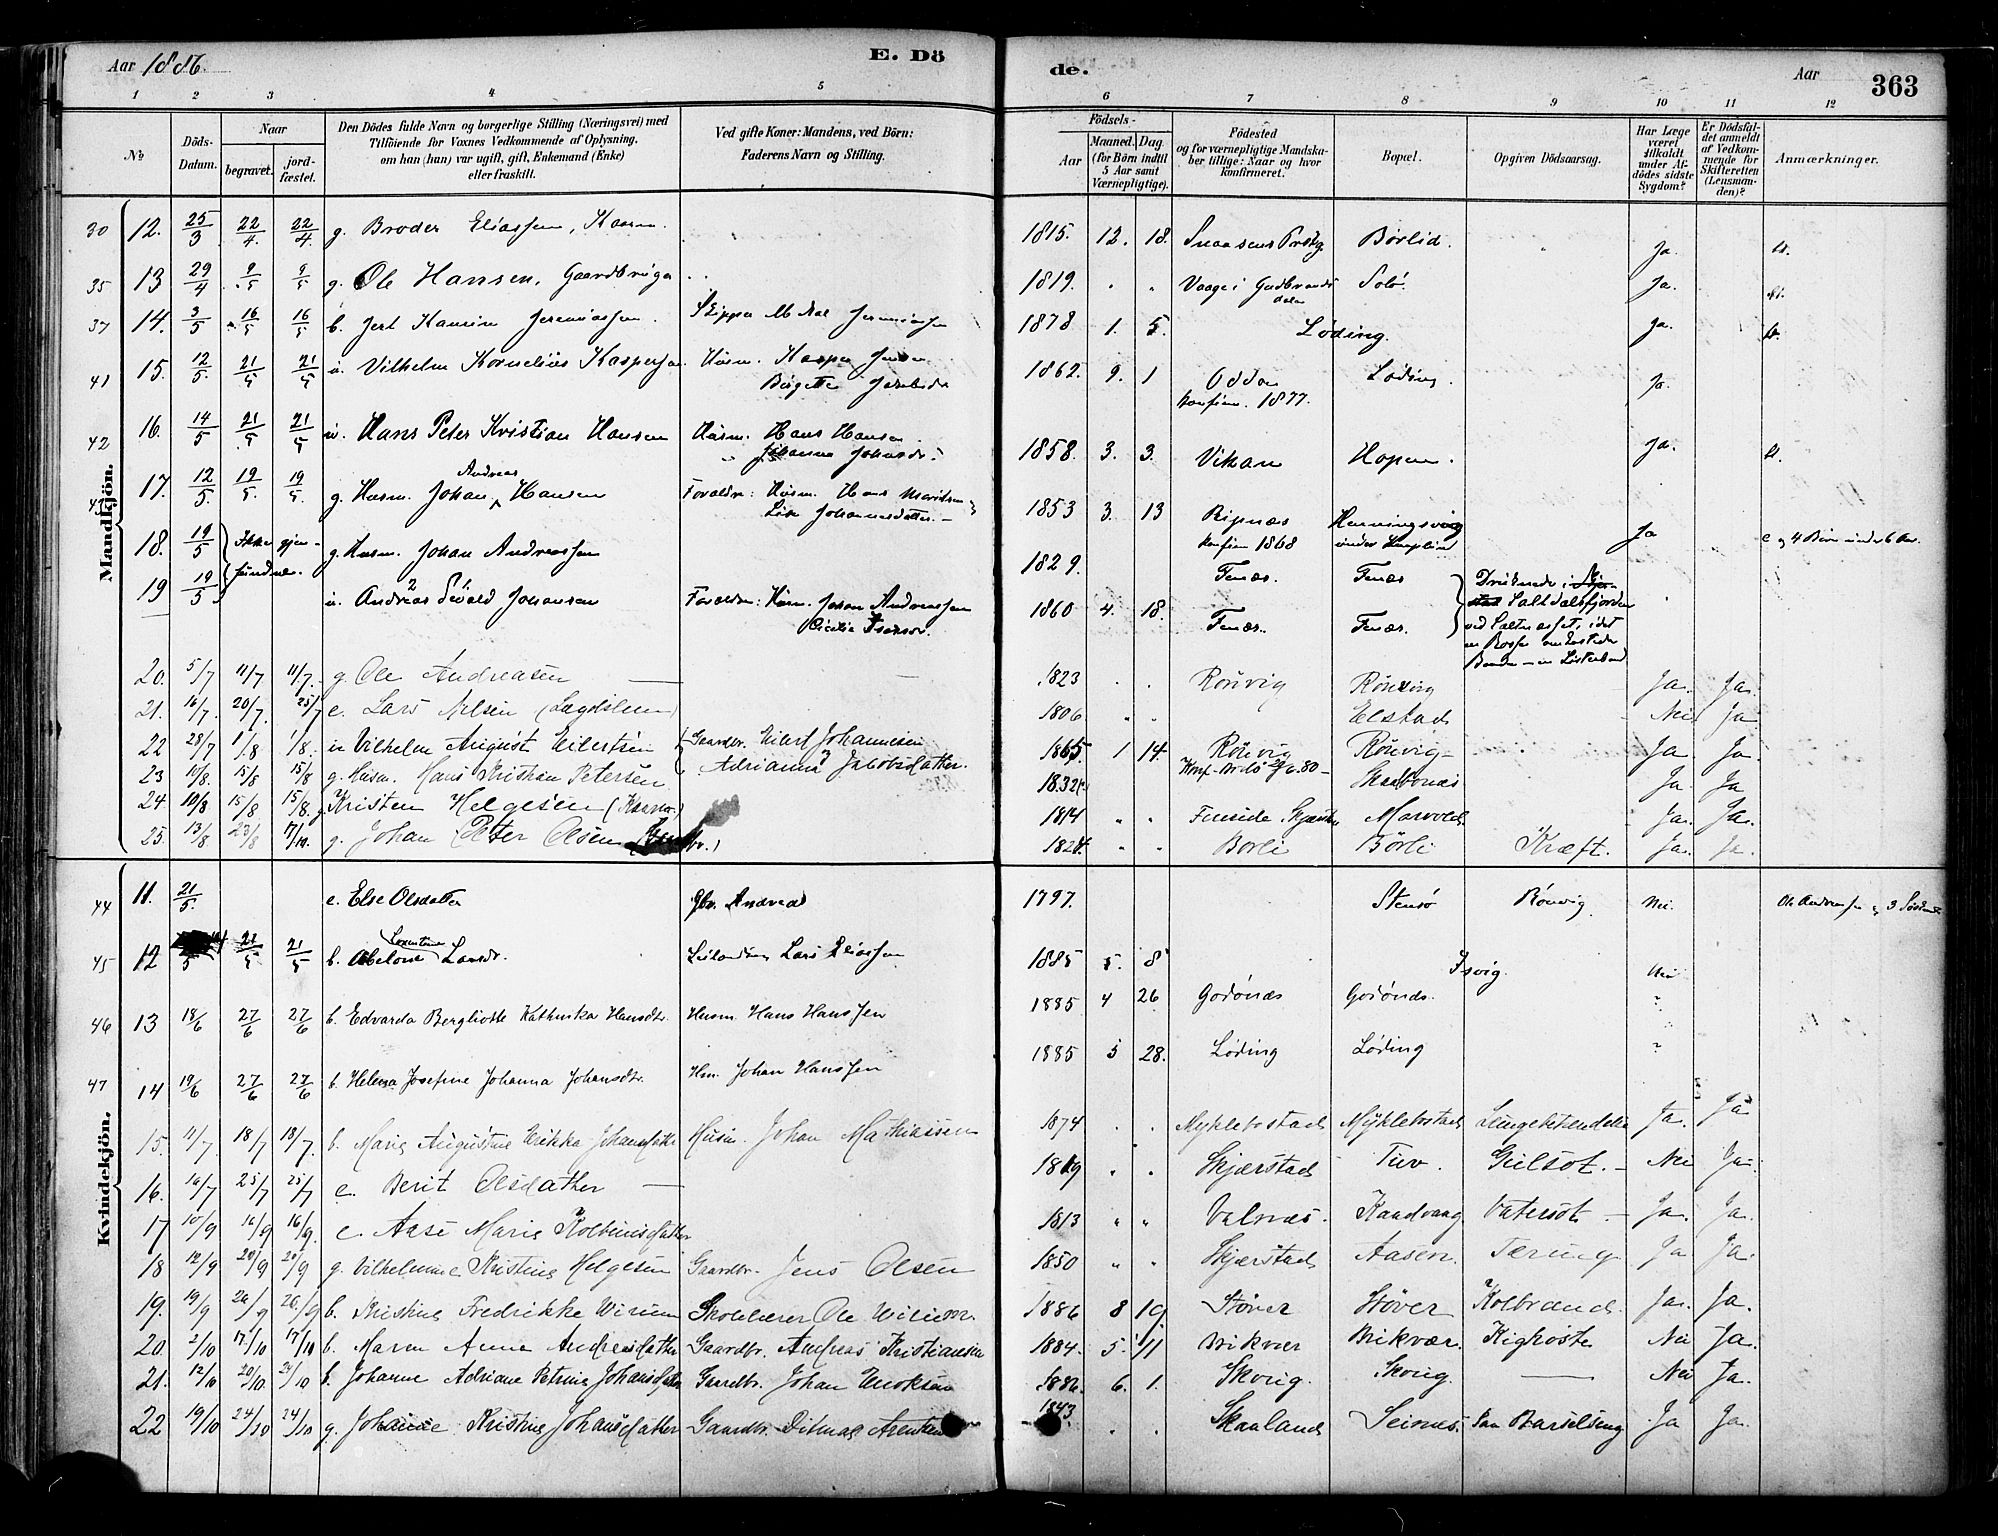 Aar 1886.
E. Dö
de.
Aar
363
1 2 3 4 5 6 7 8 9 10 11 12
No
Döds-Datum.
Naar
begravet.
jord-fæstet.
Den Dödes fulde Navn og borgerlige Stilling (Næringsvei) med
Tilföiende for Voxnes Vedkommende af Oplysning,
om han (hun) var ugift, gift, Enkemand (Enke)
eller fraskilt.
Ved gifte Koner: Mandens, ved Börn:
Faderens Navn og Stilling.
Födsels-
Aar
Maaned. Dag.
(for Börn indtil
5 Aar samt
Værnepligtige).
Födested
og for værnepligtige Mandska-
ber tillige: Naar og hvor
konfirmeret.
Bopæl.
Opgiven Dödsaarsag.
Har Læge
været
tilkaldt
under Af-
dödes sidste
Sygdom?
Er Dödsfal-
det anmeldt
af Vedkom-
mende for
Skifteretten
(Lensman-
den)?
Anmærkninger.
Mandkjön.
30 12. 25/3 22/4. 22/4. g. Broder Eliassen, Kaarm. 1815. 12. 18. Snaasens Prstg Børlid. Ja.
35 13 29/4 9/5 9/5 g. Ole Hansen, Gaardbruger 1819. Vaage i Gudbrandsdalen Solø. Ja.
37 14. 3/5 16/5 16/5 b. Jeremiassen. Skipper Jeremiassen 1878 1. 5. Løding. Ja.
41 15. 12/5. 21/5 21/5 u. Vilhelm Kornelius Kaspersen Husm. Kasper Jensen 1862. 9. 1 Oddan Løding. Ja.
Birgitte Jakobsdr konfirm. 1877.
42 16. 14/5 21/5 21/5 u. Hans Peter Kristian Hansen Husm. Hans Hansen 1858. 3. 3. Vikan Hopen. Ja.
Johanna Johansdr.
43 17. 12/5. 19/5. 19/5. g. Husm. Johan Andreas Hansen Forældre: Husm. Hans 1853 3. 13 Ripnæs Henningsvig Ja
Johannesdatter. konfirm 1868 under 4 Børn under 6 Aar.
18. 19/5 Ikke gjen- g. Husm. Johan Andreassen 1829. Fenæs. Fenæs Druknede i
19 19/5 fundne. u. Andreas Sevald Johansen Forældre: Husm. Johan Andreassen 1860 4. 18. Fenæs. Fenæs. Saltdalsfjorden
Cecilie ved Saltnæsset, idet
en
20. 5/7 11/7 11/7. g. Ole Andreasen 1823 Rönvig Rönvig Ja. Ja.
21. 16/7. 20/7. 25/7 e. Lars Nilsen (Lægdslem) 1806 Elstad Nei Ja
22 28/7 1/8 1/8. u Vilhelm August Eilertsen Gaardbr. Eilert Johannesen 1865 1 14. Rönvig Rönvig Ja Ja.
23 10/8. 15/8 15/8 g. Husm. Hans Kristian Petersen Adrianna Jakobsdatter. 1832 Konf. Bodø 20/6. 80 Skaalbonæs Ja. Ja
24. 10/8 15/8 15/8. g. Kristen Helgesen (Kaarm.) 1814 Funside Skjærstad Marvold. Ja. Ja.
25. 13/8 23/8 17/10. g. Johan Peter Olsen 1824. Børli Børli Kræft. Ja. Ja.
Kvindekjön.
44 11. 21/5. e. Else Olsdatter Gbr. Andreas 1797. Stensø Rönvig. Nei. Ole Andreassen og 3 Søskende
45 12 5 21/5 21/5 b. Abelone Lorentine Larsdr. Leilænding Lars Eliassen 1885 5. 8 Isvig. Nei
46 13 18/6 27/6 27/6 b. Edvarda Bergliotte Kathinka Hansdtr. Husm. Hans Hanssen 1885 4 26 Godønæs Godønæs.
47 14 19/6 27/6 27/6 b. Helena Josefine Johanna Johansdtr. Hm. Johan Hanssen 1885 5 28. Løding Løding
15. 11/7 18/7 18/7. b. Marie Augustine Erikka Johansdatter Husm. Johan Mathiassen 1874 Myklebostad Myklebostad Lungebetændelse Ja. Ja
16. 16/7 25/7 25/7 e. Berit Olsdatter 1819 Skjærstad Tuv. Gulsot. Nei Ja.
17 10/9 16/9 16/9. e. Aase Marie Kolbeinsdatter 1813 Valnæs. Kandvaag Vatersot. Ja. Ja.
18 12/9 20/9 20/9 g. Vilhelmine Kristine Helgesen Gaardbr. Jens Olsen 1850 Skjærstad Aasen. Tæring. Ja Ja.
19. 19/9 26/9 26/9 b. Kristine Fredrikke Wirum Skolelærer Ole Wirum. 1886 8 19 Støver Støver Kolbrand. Ja. Ja.
20. 2/10 17/10 17/10 b. Maren Anna Andreasdatter Gaardbr. Andreas Kristiansen 1884. 5. 11 Brikvær Brikvær. Kighoste Nei Ja.
21. 12/10 20/10 24/10 b. Johanne Adriane Petrine Johansdatter Gaardbr. Johan Enoksen 1886. 6. 1. Skvig. Skvig. Nei Ja.
22 19/10 24/10 24/10 g. Johanne Kristine Johansdatter Gaardbr. Ditmar Arentsen 1843. Skaaland Seines. Barselseng Ja Ja.